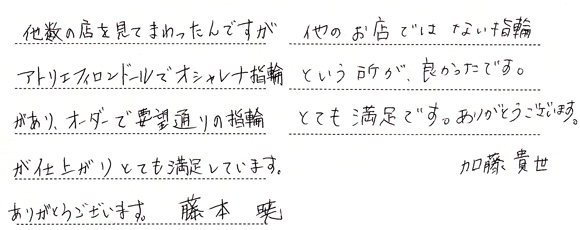 他数の店を見てまわったんですが
アトリエフィロンドールでオシャレナ指輪
があり、オーダーで要望通りの指輪
が仕上がりとても満足しています。
ありがとうございます。 藤本 暁
他のお店ではない指輪
という所が、良かったです。
とても満足です。ありがとうございます。
加藤貴世